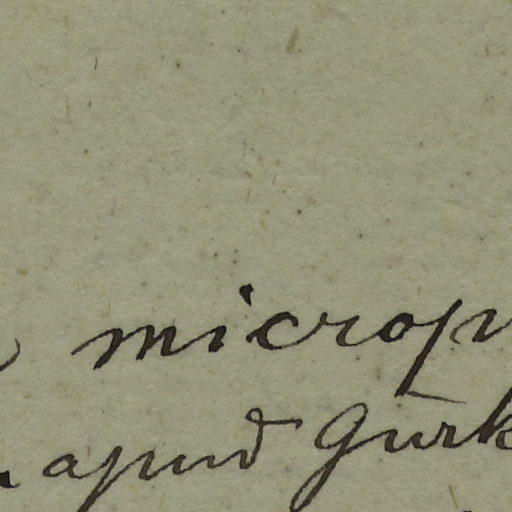 microp
apud Gürk